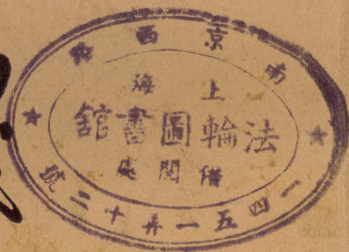 南京西路
上海
法輪圖書館
借閱處
一四五一弄十二號